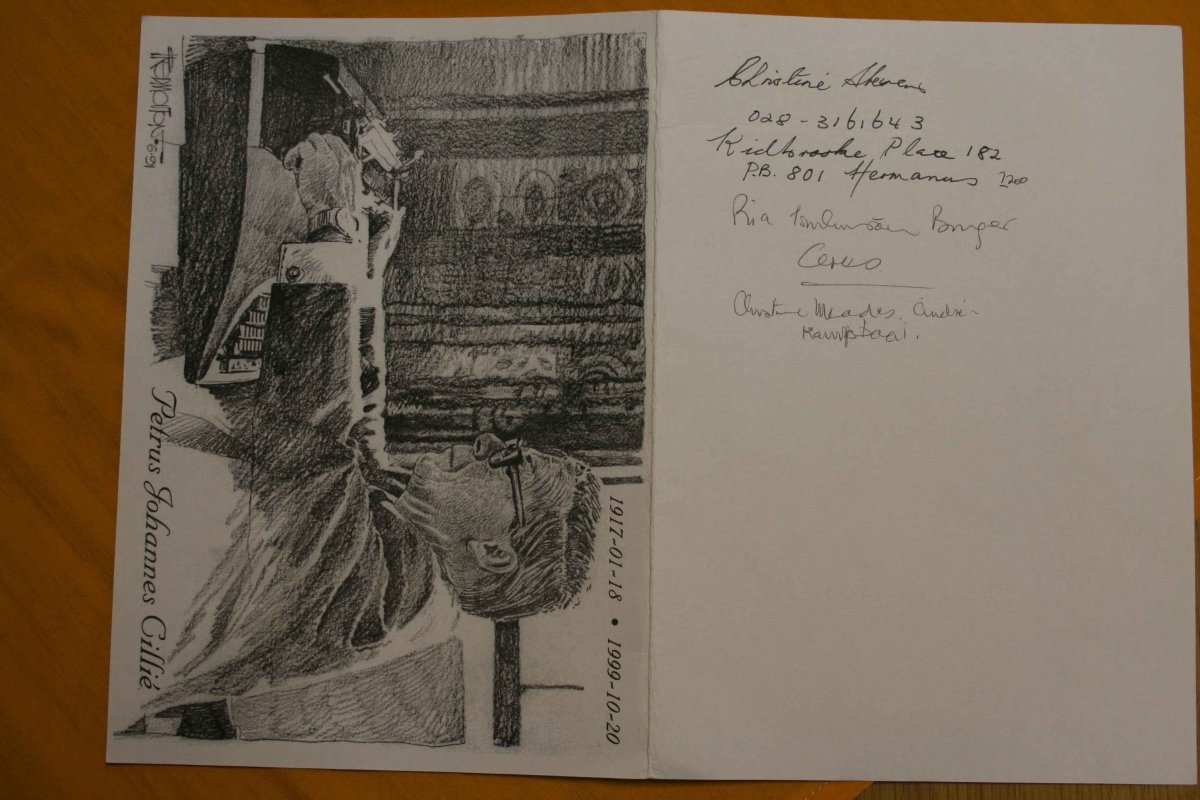 Petrus Johannes Cillié
1917-01-18 • 1999-10-20
Christine Stevens
028-3161643
Kidbrooke Place 182
P.B. 801 Hermanus 7200
Ria Burger
Ceres
Christine Meades. André-
Kampsbaai.